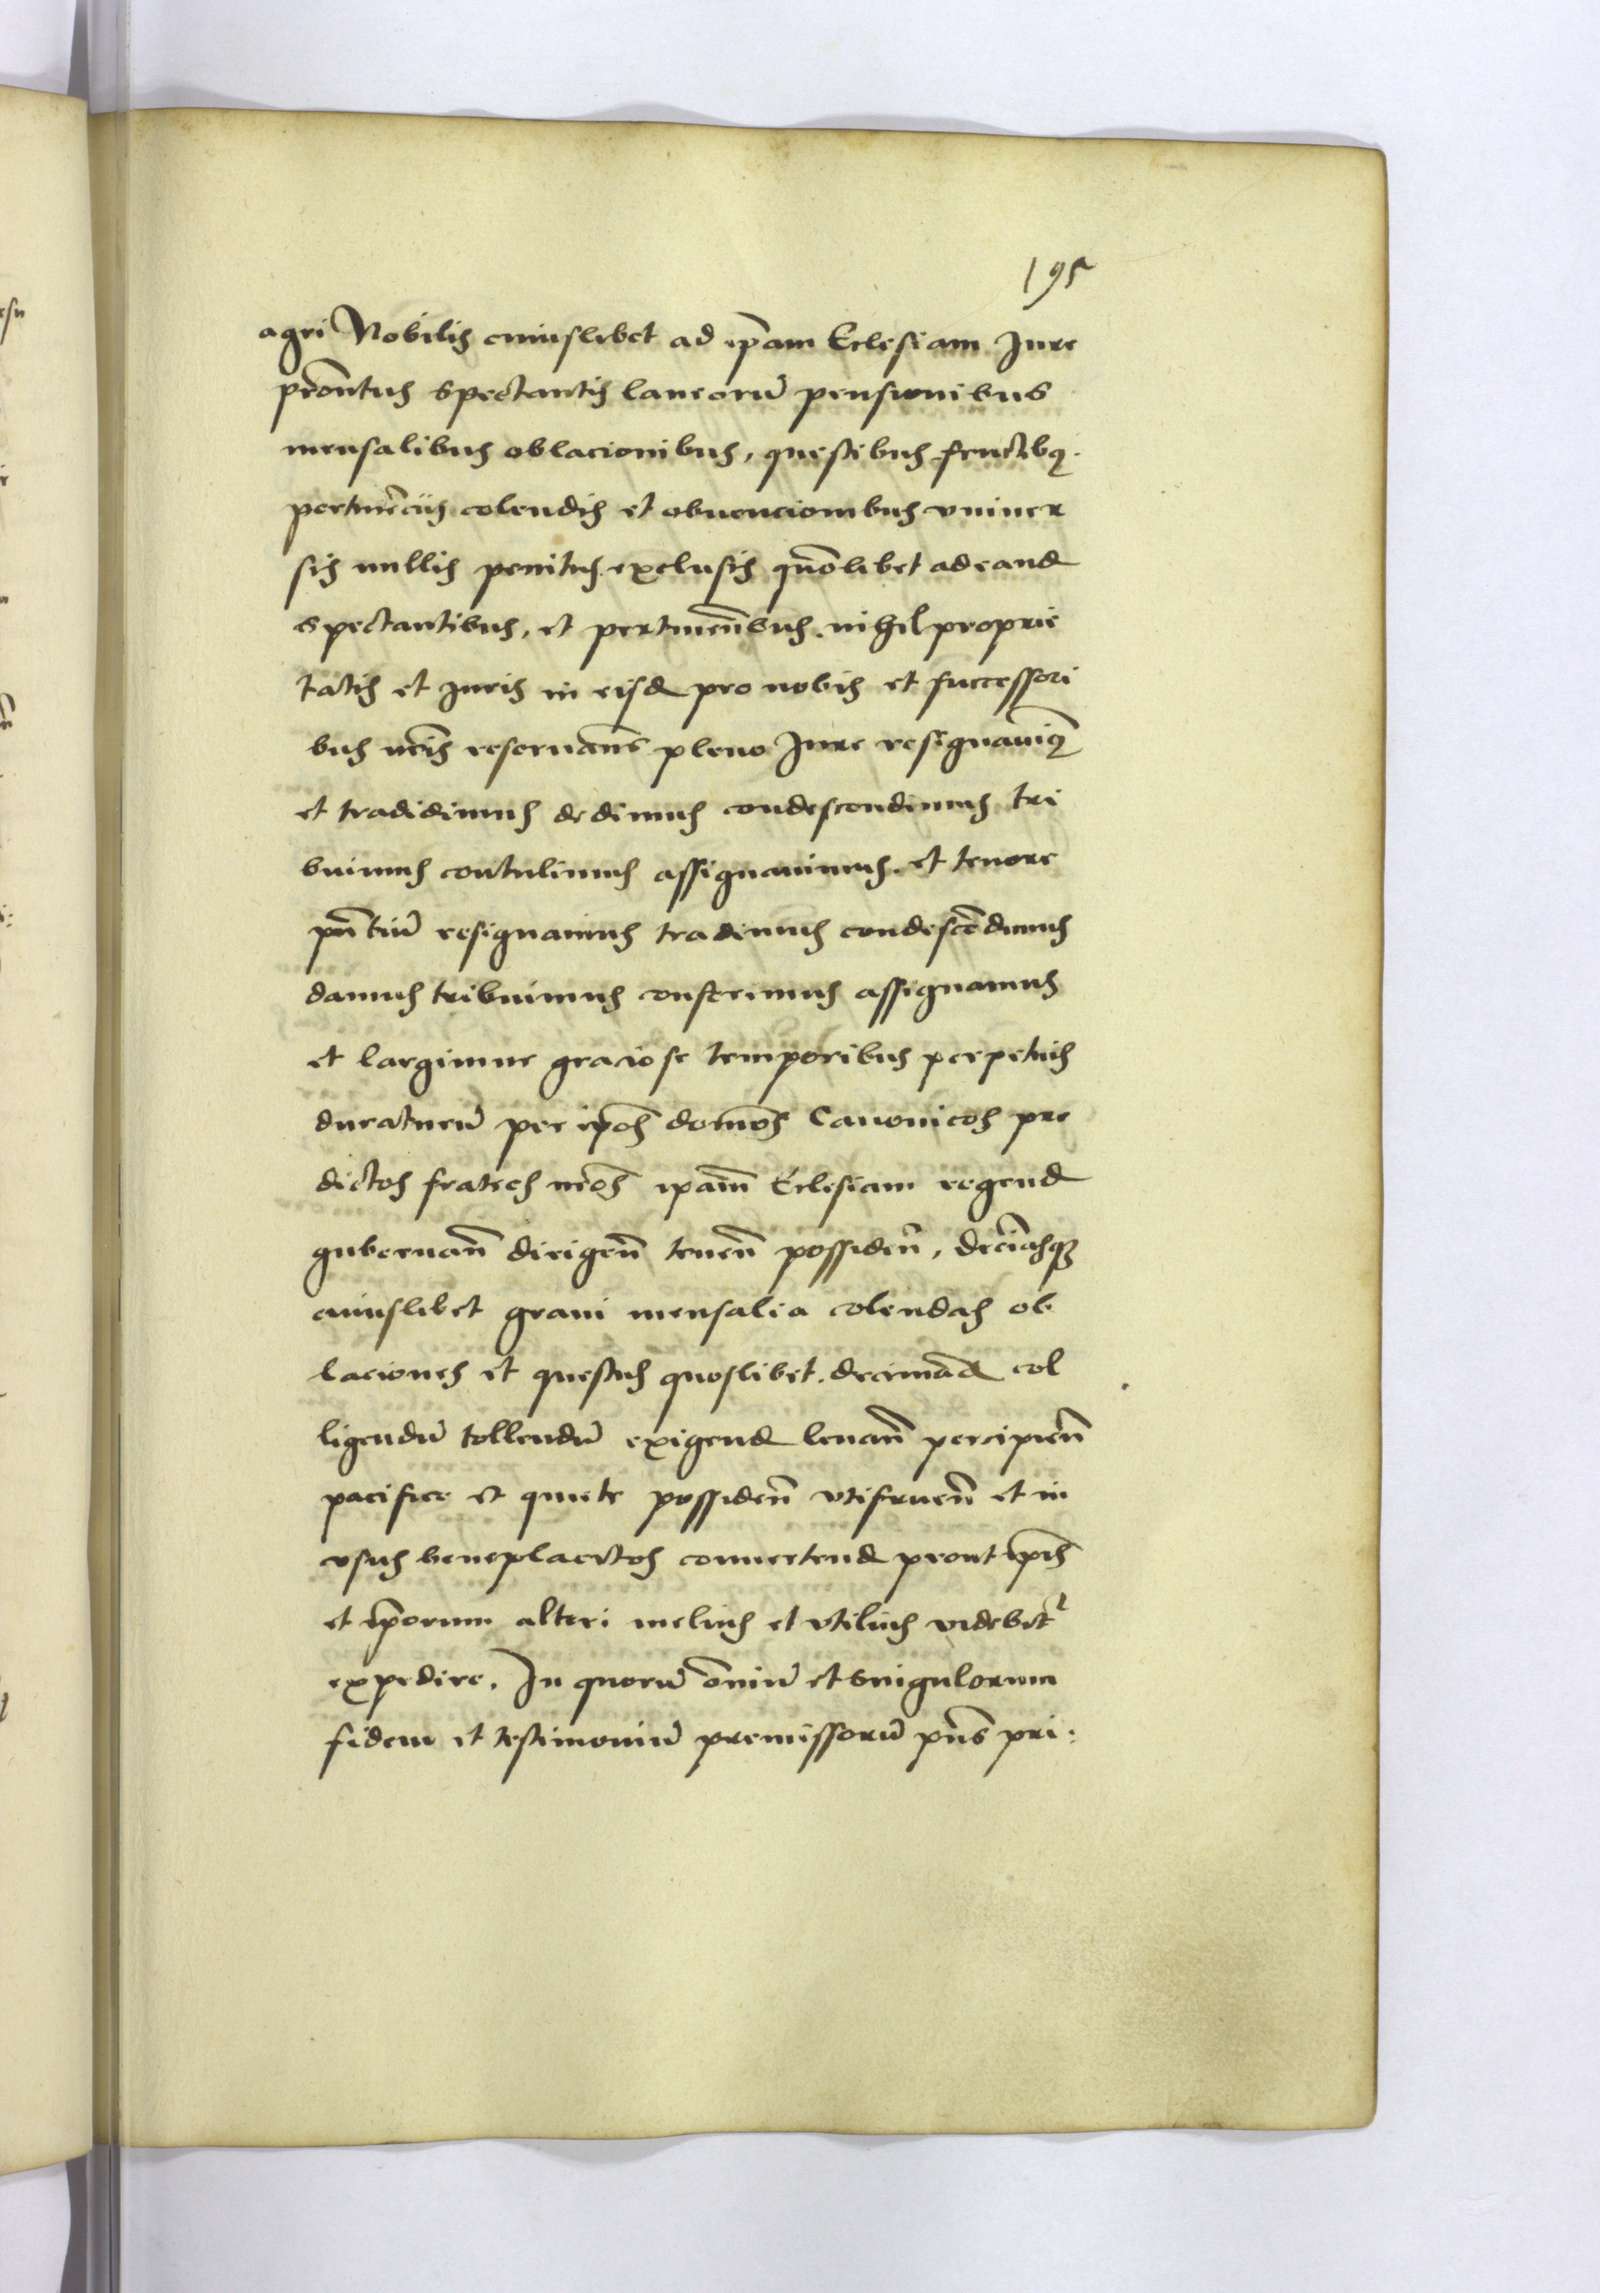 195
agri Nobilis cuiuslibet ad ip̃am Eclesiam Jure
patronatus spectantis laneorũ pensionibus
mensalibus oblacionibus, questibus fructibq̃
pertinẽcijs colendis et obuencionibus vniuer
sis nullis penitus exclusis quõlibet ad eand
spectantibus, et pertinẽnbus. nihil proprie
tatis et Juris in eisd pro nobis et successori
bus nr̃is reseruans pleno Jure resignauimꝰ
et tradidimus dedimus condescendimus tri
buimus contulimus assignauimus. et tenore
pñtiũ resignamus tradimus condescẽdimus
damus tribuimus conferimus assignamus
et largimur graciose temporibus perpetuis
duraturũ per ip̃os dom̃os Canonicos pre
dictos fratres nr̃os ip̃am Eclesiam regend
gubernañ dirigeñ teneñ possideñ, decimasqʒ
cuiuslibet grani mensalia colendas ob
laciones et questus quoslibet. decimãd col
ligendũ tollendũ exigend leuañ percipieñ
pacifice et quiete possideñ vtifrueñ et in
vsus beneplacitos conuertend prout ip̃is
et ip̃orum alteri melius et vtilius videbitʳ
expedire. In quorũ om̃iũ et singulorum
fidem et testimoniũ premissorũ pñs pri: